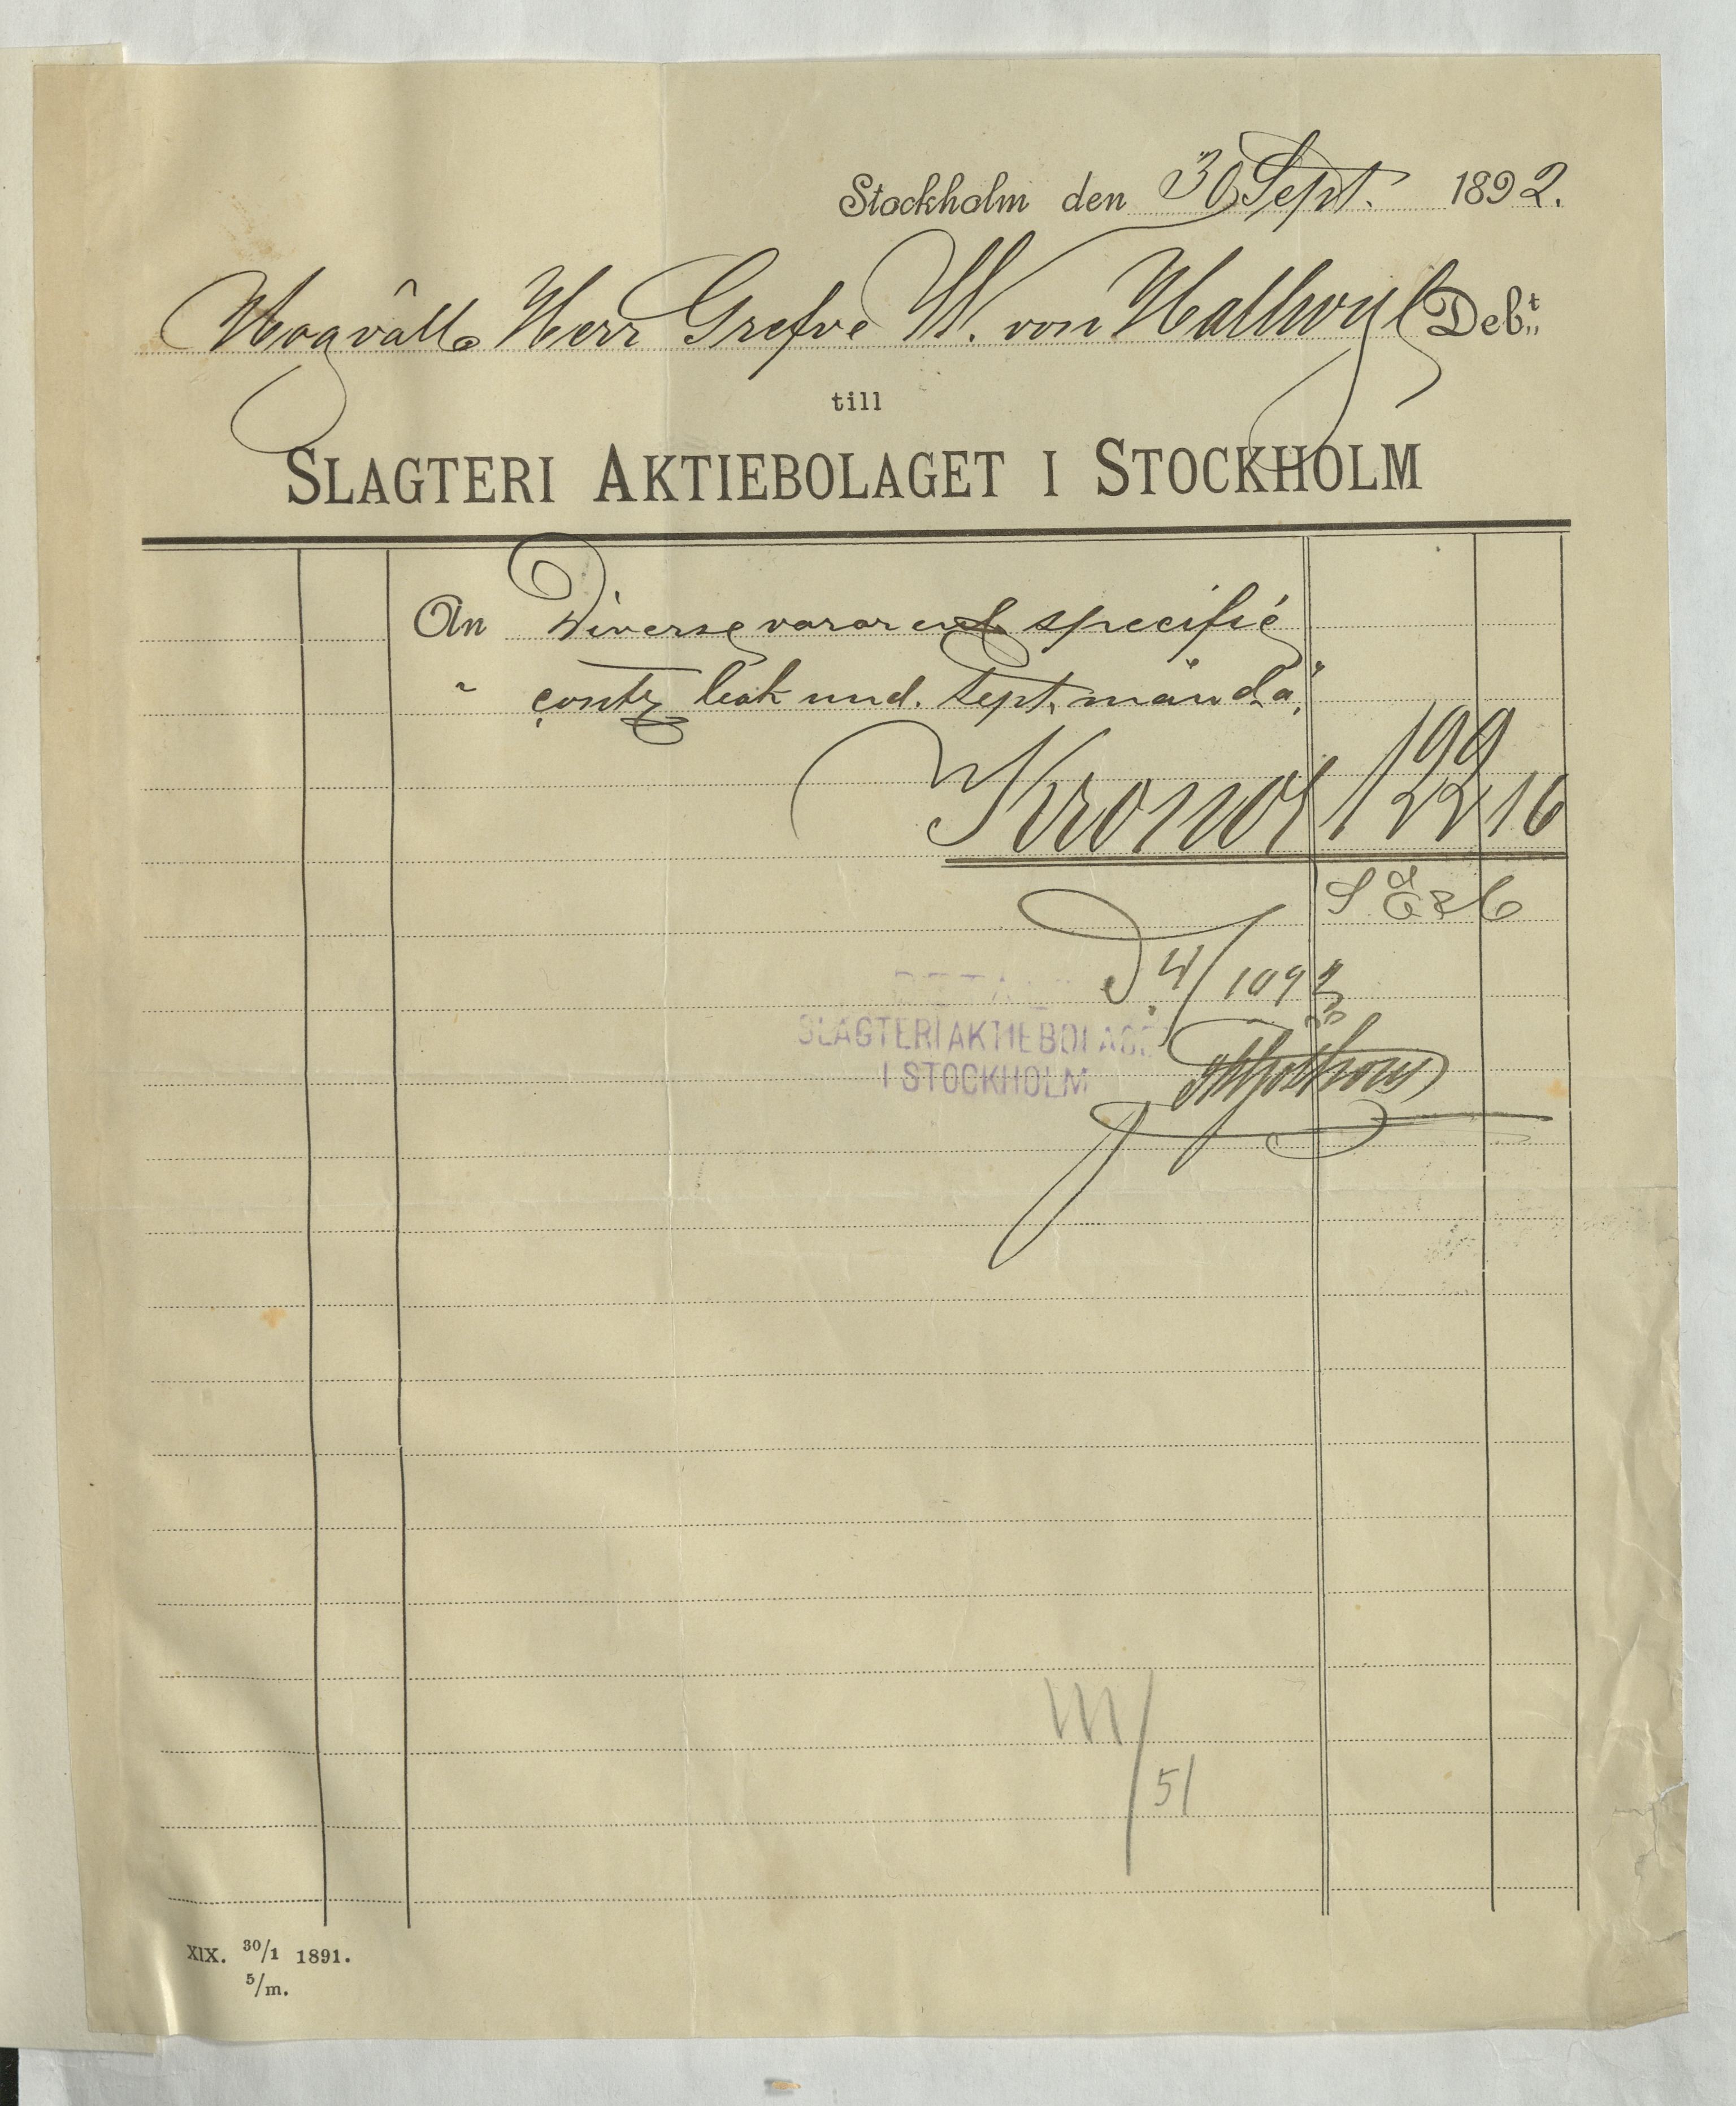 Stockholm den 30 Sept. 1892.
Högvälb Herr Grefve W. von Hallwyl Deb:t
till
SLAGTERI AKTIEBOLAGET I STOCKHOLM
An Diverse varor enl specifié
" bok und. Sept. månd
Kronor 122 16
SLAGTERIAKTIEBOLAGE
I STOCKHOLM
51
XIX. 30/1 1891.
5/m.